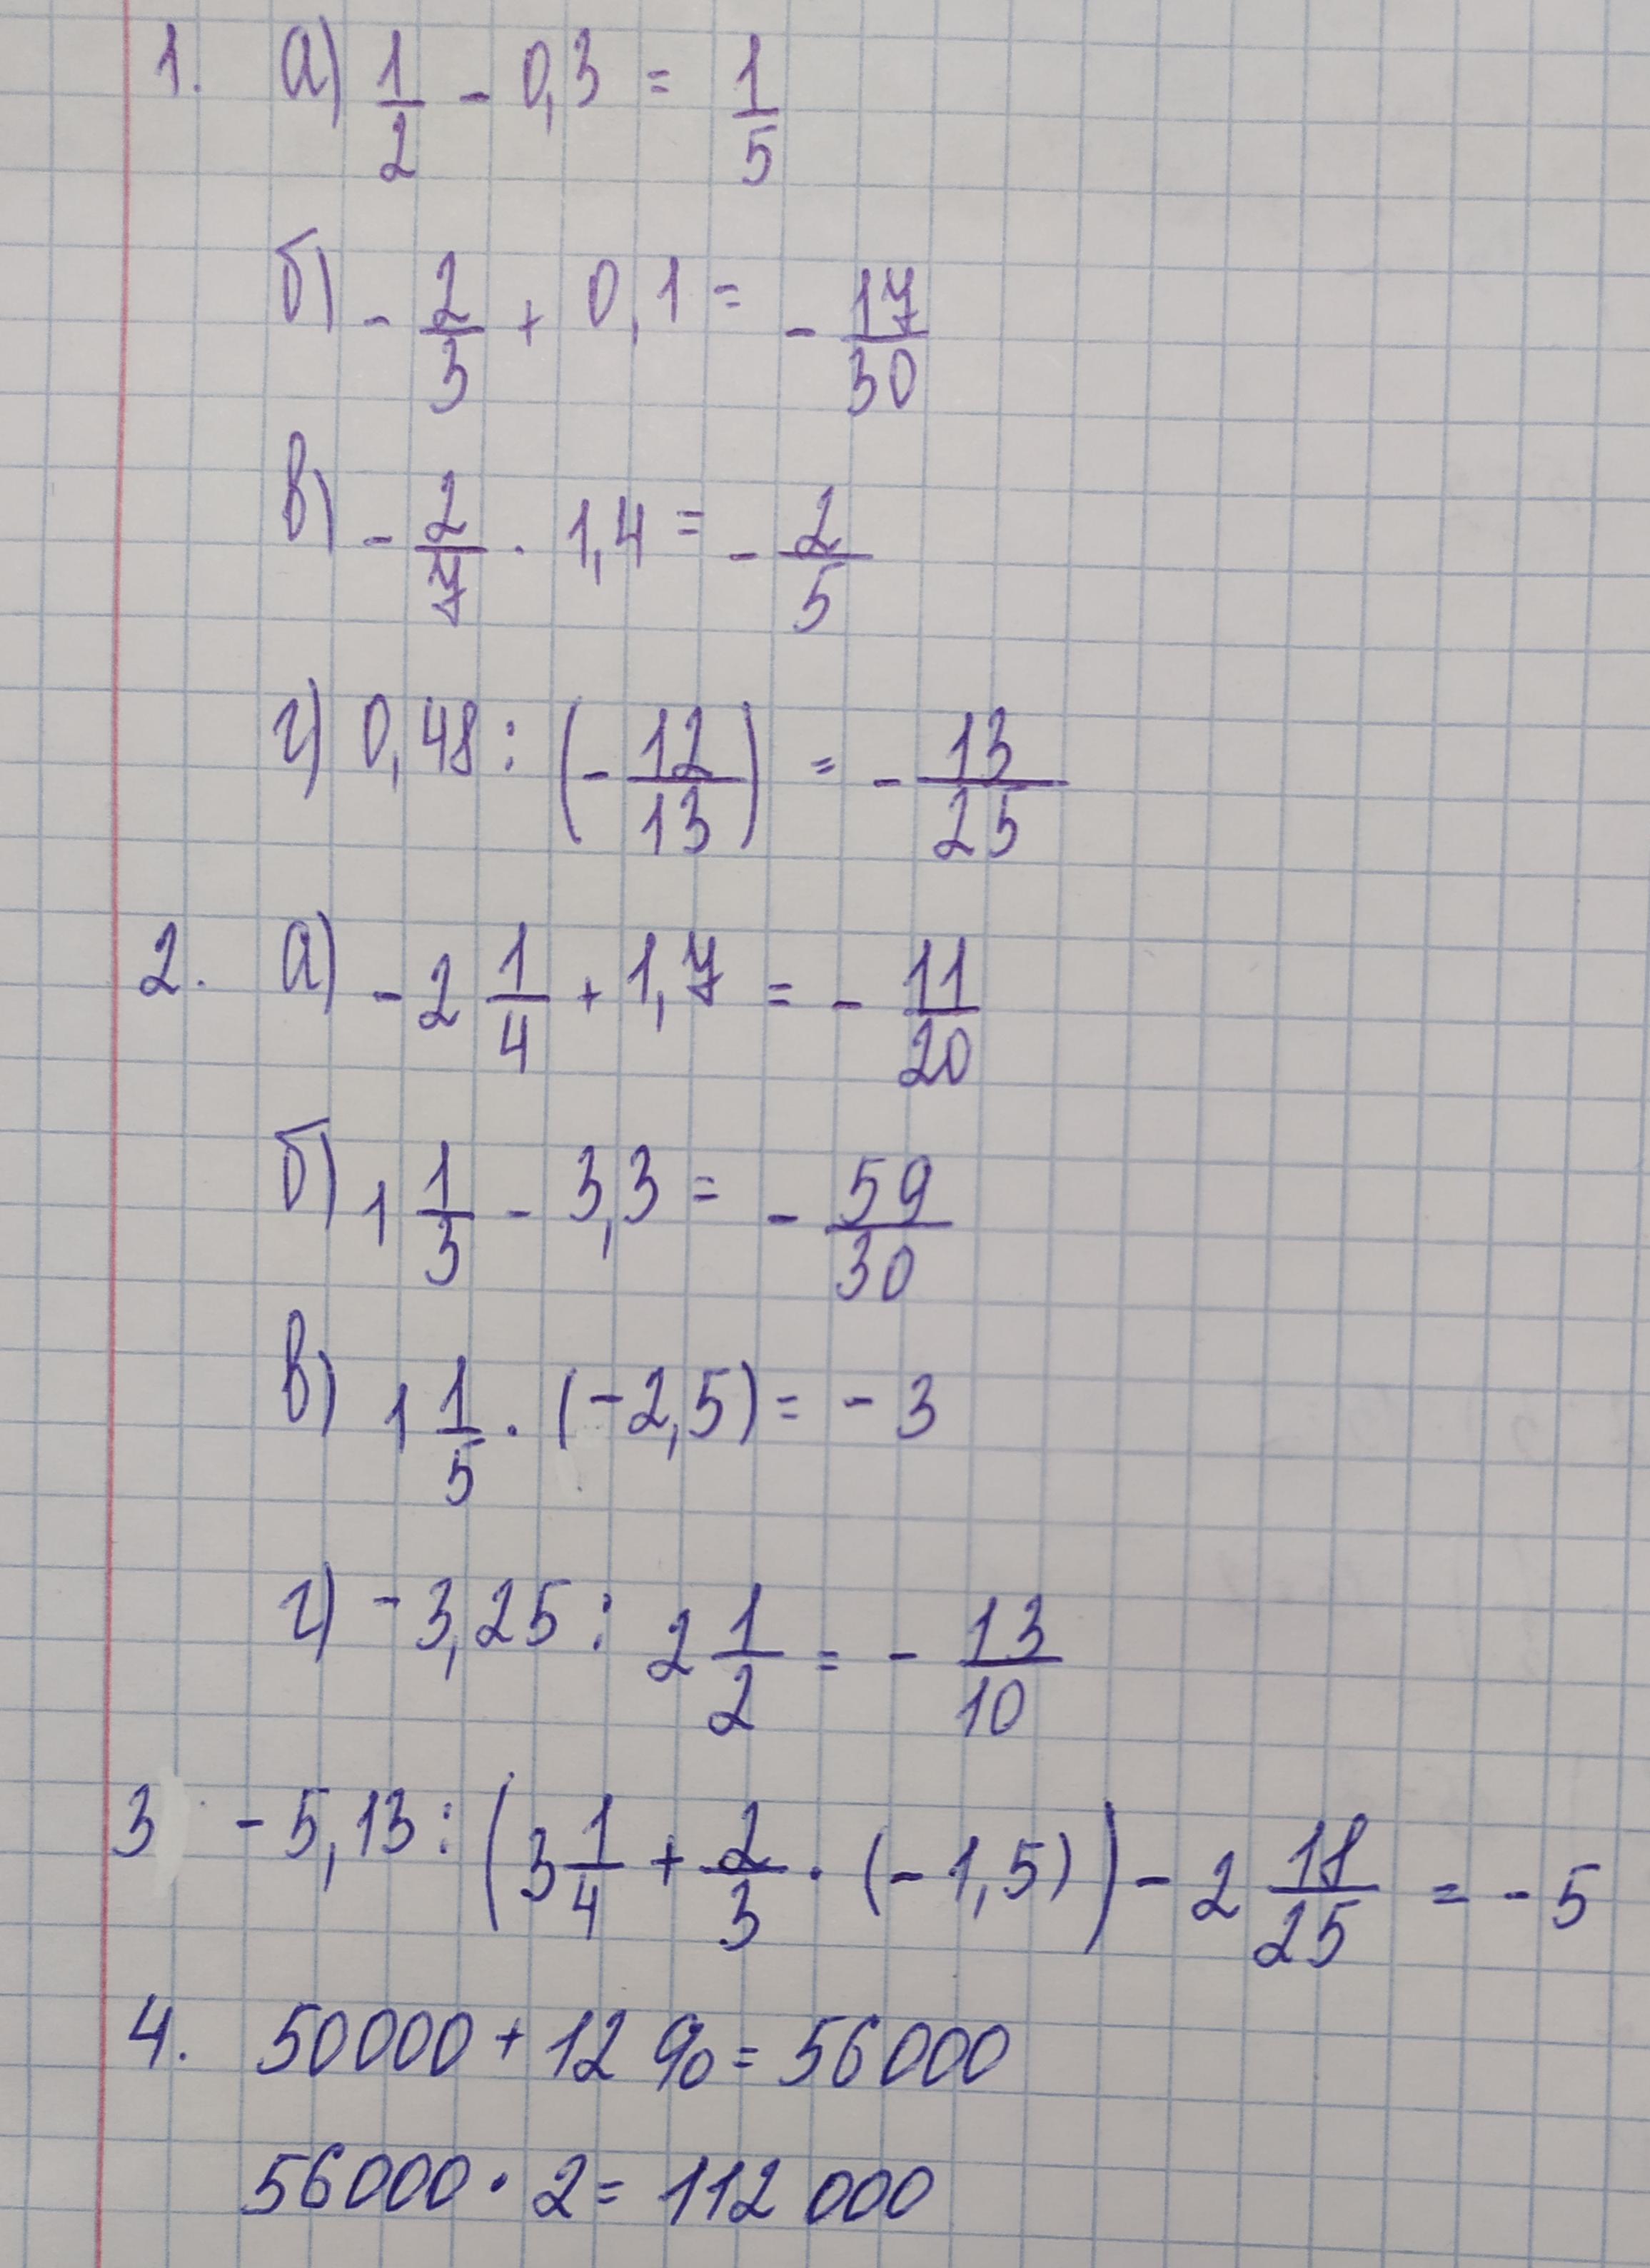 1. а) 1/2 - 0,3 = 1/5
б) - 2/3 + 0,1 = - 17/30
в) - 2/7 · 1,4 = - 2/5
г) 0,48 : (- 12/13) = - 13/25
2. а) - 2 1/4 + 1,7 = - 11/20
б) 1 1/3 - 3,3 = - 59/30
в) 1 1/5 · (-2,5) = - 3
г) - 3,25 : 2 1/2 = - 13/10
3 - 5,13 : (3 1/4 + 2/3 · (-1,5)) - 2 18/25 = - 5
4. 50000 + 12 % = 56000
56000 · 2 = 112 000